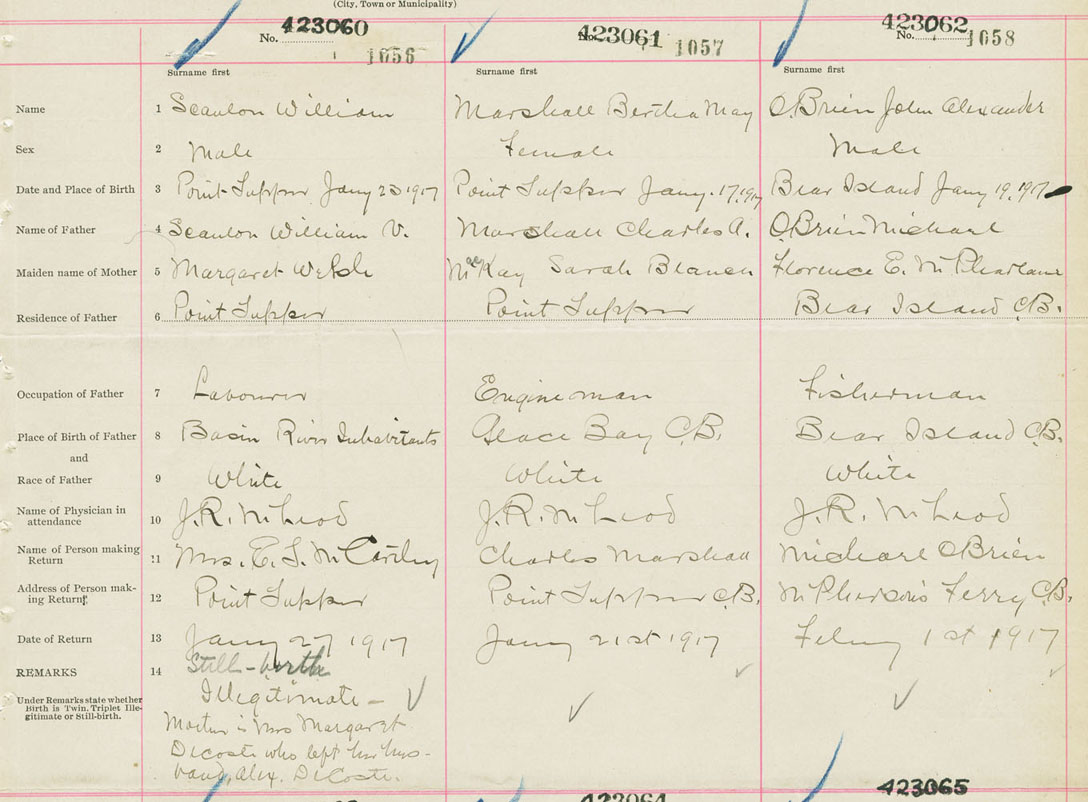 (City, Town or Municipality)
No. 423060 1056
No. 423061 1057
No. 423062 1058
Surname first Surname first Surname first
Name 1 Scanlon William Marshall Bertha May O'Brien John Alexander
Sex 2 Male Female Male
Date and Place of Birth 3 Point Tupper Jany 23 1917 Point Tupper Jany. 17, 1917 Bear Island Jany 19, 1917
Name of Father 4 Scanlon William V. Marshall Charles A. O'Brien Michael
Maiden name of Mother 5 Margaret Welsh McKay Sarah Blanch Florence E.
Residence of Father 6 Point Tupper Point Tupper Bear Island C.B.
Occupation of Father 7 Labourer Engineman Fisherman
Place of Birth of Father 8 Basin River Inhabitants Glace Bay C.B. Bear Island C.B.
and
Race of Father 9 White White White
Name of Physician in
attendance 10 J.R. McLeod J.R. McLeod J.R. McLeod
Name of Person making
Return 11 Mrs. E. J. McCarthy Charles Marshall Michael O'Brien
Address of Person mak-
ing Return 12 Point Tupper Point Tupper C.B. McPherson's Ferry C.B.
Date of Return 13 Jany 27 1917 Jany 21st 1917 Feby 1st 1917
REMARKS 14 Still-birth
Under Remarks state whether
Birth is Twin. Triplet Ille-
gitimate or Still-birth.
Illegitimate -
Mother is Mrs Margaret
Decoste who left her hus-
band, Alex. DeCoste.
423064
423065